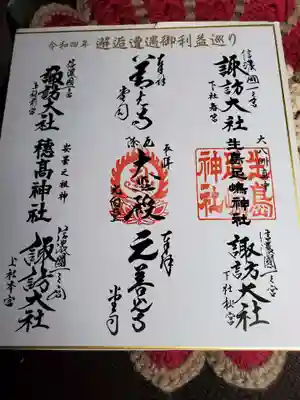 令和四年 邂逅遭遇御利益巡り
信濃國一之宮
諏訪大社
下社春宮
大八洲之神
生島足嶋神社
生島神社
信濃國一之宮
諏訪大社
下社秋宮
奉拝
善光寺
奉拝
大日殿
奉拝
元善光寺
信濃國一之宮
諏訪大社
上社前宮
安曇之祖神
穂高神社
信濃國一之宮
諏訪大社
上社本宮